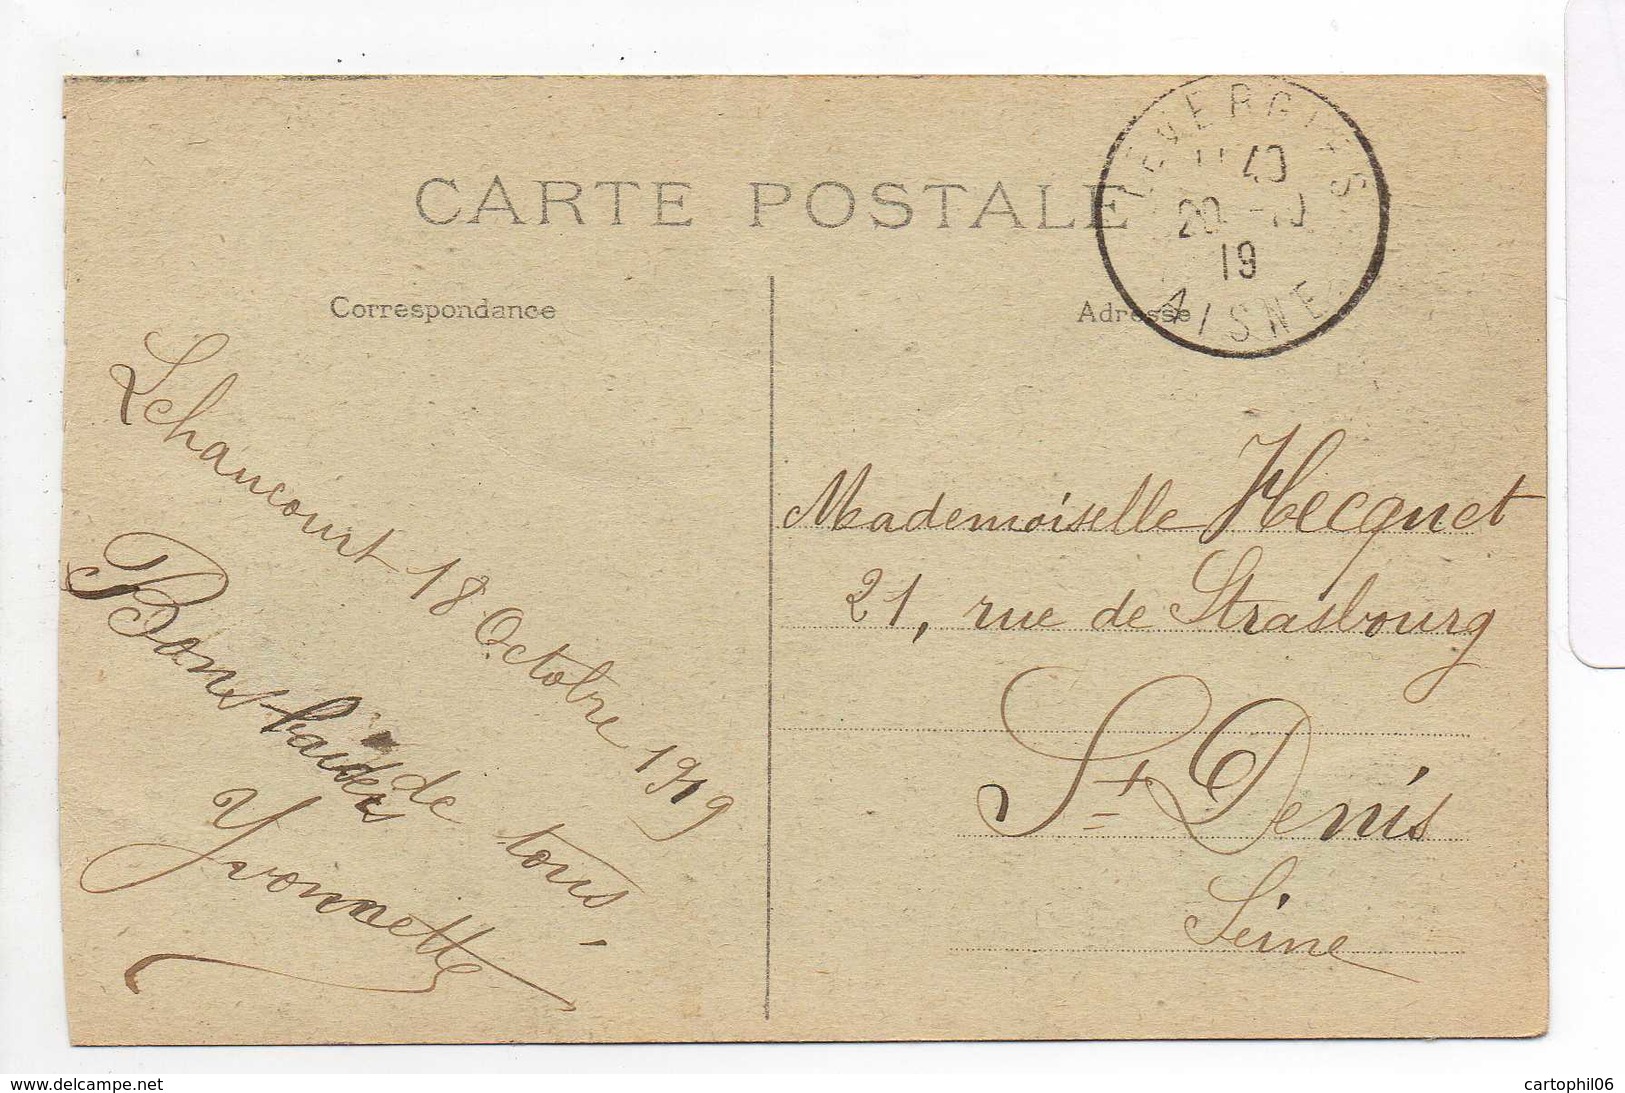 CARTE POSTALE
Correspondance
Adresse
LEVERGIES
11 40
20 -10
19
AISNE
Lehaucourt 18 Octobre 1919
Bons baisers de tous.
Yvonnette
Mademoiselle Hecquet
21, rue de Strasbourg
St Denis
Seine
www.delcampe.net
cartophil06